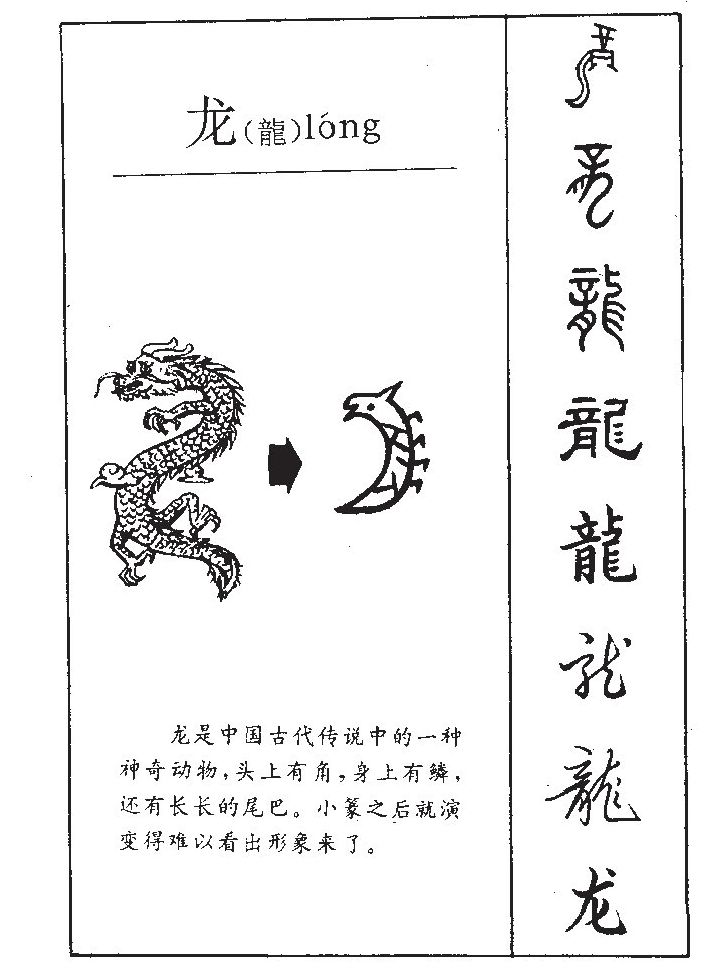 龙(龍)lóng
龙是中国古代传说中的一种
神奇动物,头上有角,身上有鳞,
还有长长的尾巴。小篆之后就演
变得难以看出形象来了。
龍
龍
龍
龍
龍
龍
龍
龙